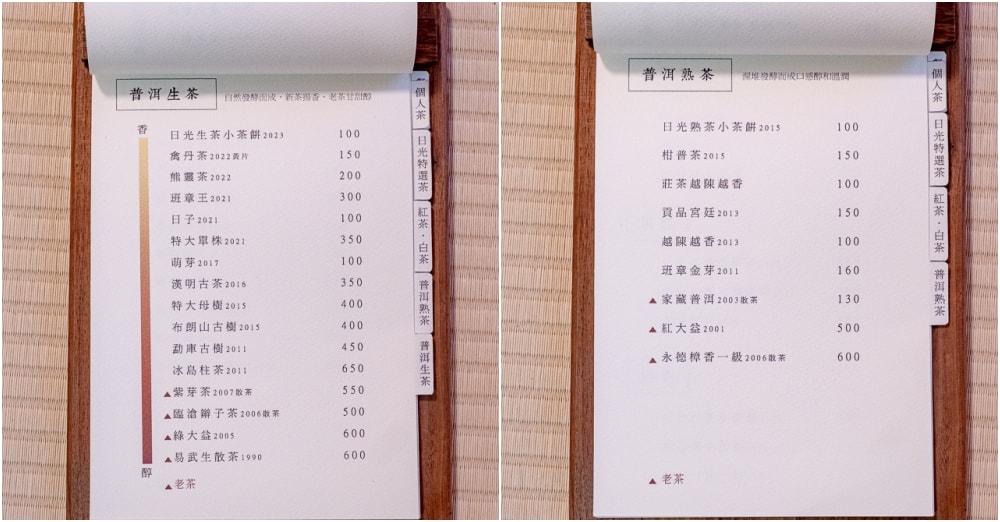 普洱生茶 自然發酵而成,新茶揚香、老茶甘甜醇
香
日光生茶小茶餅2023 100
禽丹茶2022黃片 150
熊靈茶2022 200
班章王2021 300
日子2021 100
特大單株2021 350
萌芽2017 100
漢明古茶2016 350
特大母樹2015 400
布朗山古樹2015 400
勐庫古樹2011 450
冰島柱茶2011 650
▲紫芽茶2007散茶 550
▲臨滄辮子茶2006散茶 500
▲綠大益2005 600
▲易武生散茶1990 600
醇
▲老茶
個人茶
日光特選茶
紅茶·白茶
普洱熟茶
普洱生茶
普洱熟茶 渥堆發酵而成口感醇和溫潤
日光熟茶小茶餅2015 100
柑普茶2015 150
莊茶越陳越香 100
貢品宮廷2013 150
越陳越香2013 100
班章金芽2011 160
▲家藏普洱2003散茶 130
▲紅大益2001 500
▲永德樟香一級2006散茶 600
▲老茶
個人茶
日光特選茶
紅茶·白茶
普洱熟茶